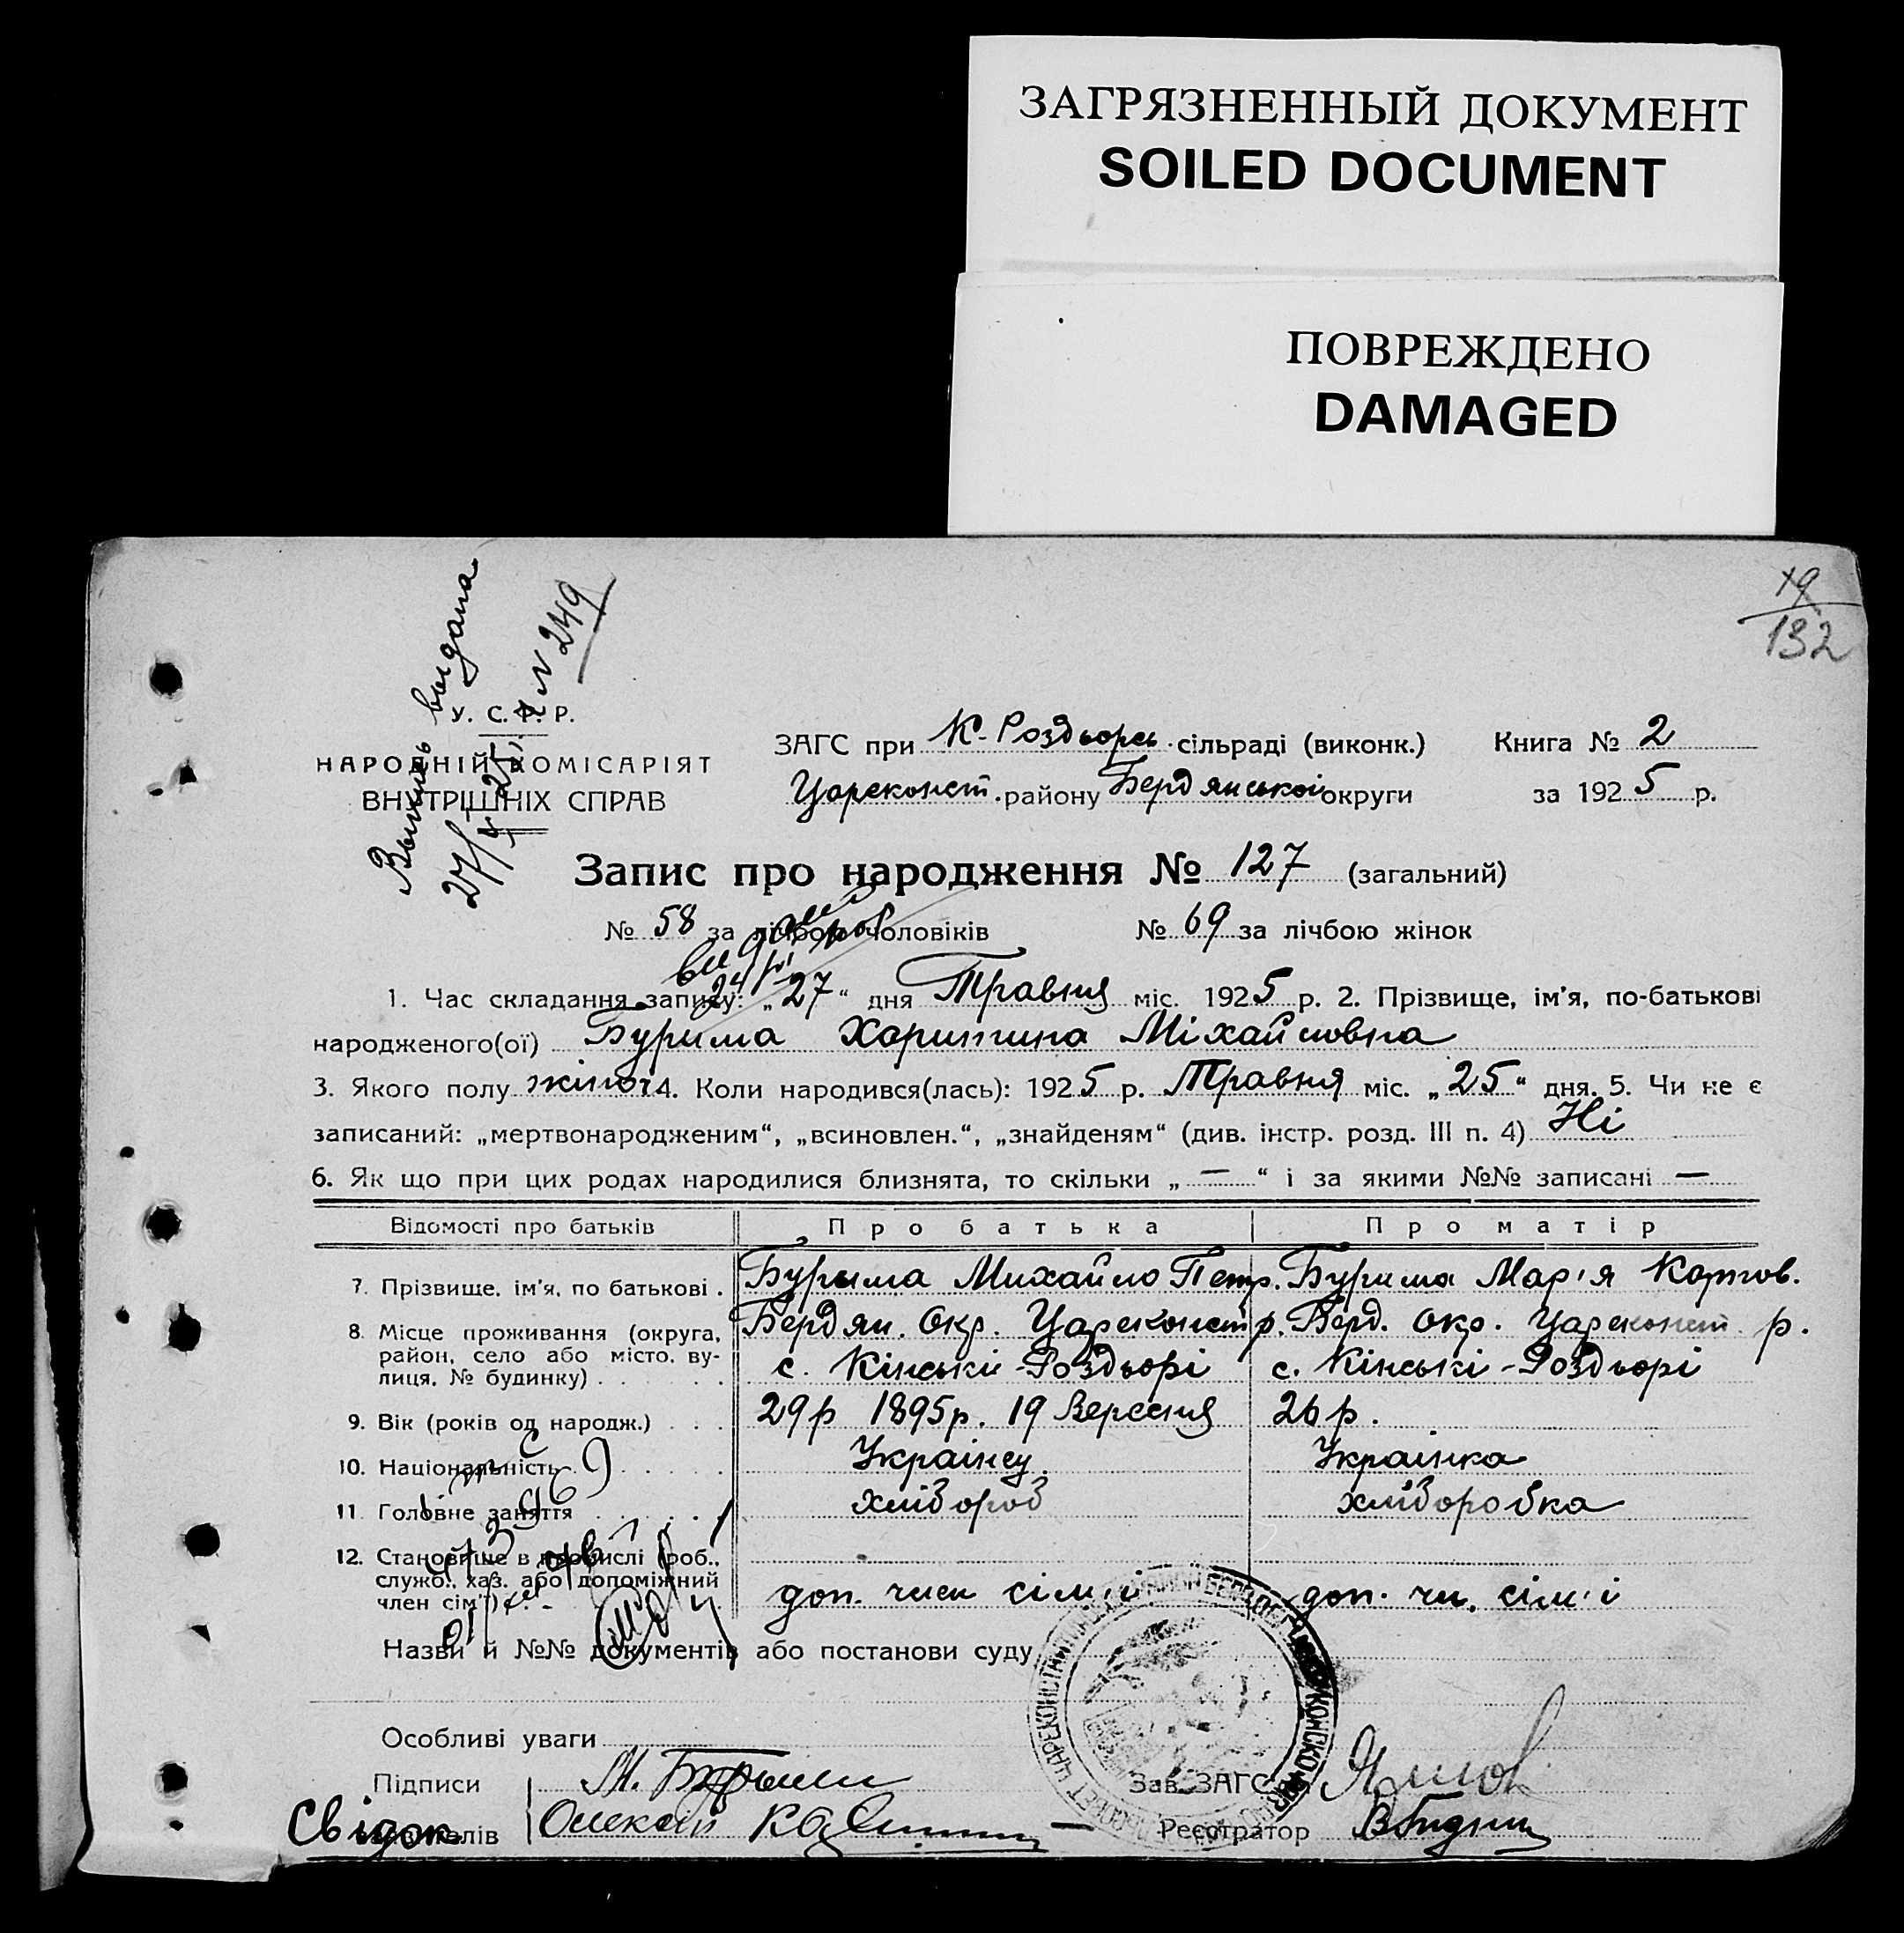 ЗАГРЯЗНЕННЫЙ ДОКУМЕНТ
SOILED DOCUMENT
ПОВРЕЖДЕНО
DAMAGED
19
132
выдана
N 249
У. С. Р. Р.
НАРОДНІЙ КОМІСАРІЯТ
ВНУТРІШНІХ СПРАВ
ЗАГС при К-Роздьорсь. сільраді (виконк.) Книга № 2
Цареконст. району Бердянської округи за 1925 р.
Запис про народження № 127 (загальний)
№ 58 за лічбою чоловіків № 69 за лічбою жінок
1. Час складання запису: „27“ дня Травня міс. 1925 р. 2. Прізвище, ім’я, по-батькові
народженого(ої) Бурима Харитина Міхайловна
3. Якого полу жіноч 4. Коли народився(лась): 1925 р. Травня міс. „25“ дня. 5. Чи не є
записаний: „мертвонародженим“, „всиновлен.“, „знайденям“ (див. інстр. розд. III п. 4) Ні
6. Як що при цих родах народилися близнята, то скільки „—“ і за якими №№ записані —
Відомості про батьків Про батька Про матір
7. Прізвище, ім’я, по батькові . Бурыма Михайло Петр. Бурима Мар’я Карпов.
8. Місце проживання (округа, район, село або місто, вулиця, № будинку) Бердян. Окр. Цареконст р. Берд. окр. Цареконст р.
с. Кінські-Роздьорі с. Кінські-Роздьорі
9. Вік (років од народж.) . . . 29 р 1895 р. 19 Вересня 26 р.
10. Національність Украінец Украінка
11. Головне заняття хлібороб хліборобка
12. Становище в промислі (роб., служб., хаз. або допоміжний член сім’ї) доп. член сім’і доп. чл. сім’і
Назви й №№ документів або постанови суду
Особливі уваги
Підписи М. Бурыма Зав. ЗАГС
Свідок Олексій Реєстратор